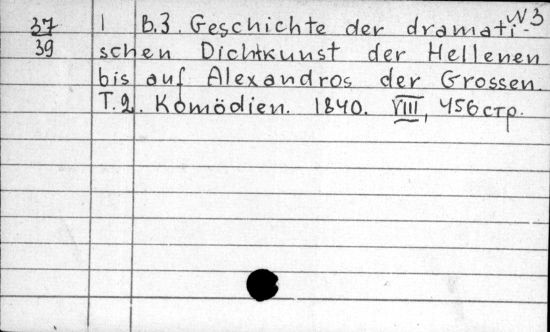 N3
37 | B.3. Geschichte der dramati-
39 schen Dichtkunst der Hellenen
bis auf Alexandros der Grossen.
T.2. Komödien. 1840. VIII, 456 стр.